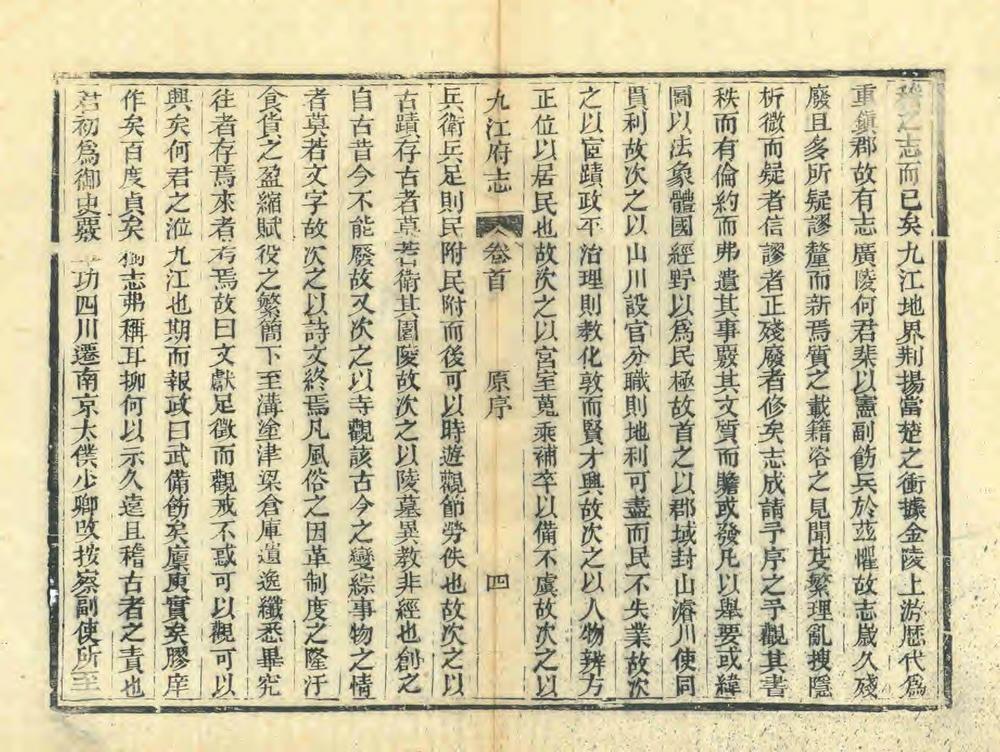 之志而已矣九江地界荆揚當楚之衝據金陵上游歴代爲
重鎭郡故有志廣陵何君棐以憲副飭兵於茲懼故志歲久殘
廢且多所疑謬釐而新焉質之載籍咨之見聞芟繁理亂搜隱
析微而疑者信謬者正殘廢者修矣志成請予序之予觀其書
秩而有倫約而弗遺其事覈其文質而贍或發凡以舉要或緯
圖以法象體國經野以爲民極故首之以郡域封山濬川使同
貫利故次之以山川設官分職則地利可盡而民不失業故次
之以宦蹟政平治理則教化敦而賢才興故次之以人物辨方
正位以居民也故次之以宮室蒐乘補卒以備不虞故次之以
九江府志 卷首 原序 四
兵衛兵足則民附民附而後可以時遊觀節勞佚也故次之以
古蹟存古者莫若衛其園陵故次之以陵墓異教非經也創之
自古昔今不能廢故又次之以寺觀該古今之變綜事物之情
者莫若文字故次之以詩文終焉凡風俗之因革制度之隆汙
食貨之盈縮賦役之繁簡下至溝塗津梁倉庫遺逸纖悉畢究
往者存焉來者考焉故曰文獻足徵而觀戒不惑可以觀可以
興矣何君之涖九江也期而報政曰武備飭矣廩庾實矣膠庠
作矣百度貞矣獨志弗稱耳抑何以示久遠且稽古者之責也
君初爲御史覈功四川遷南京太僕少卿改按察副使所至